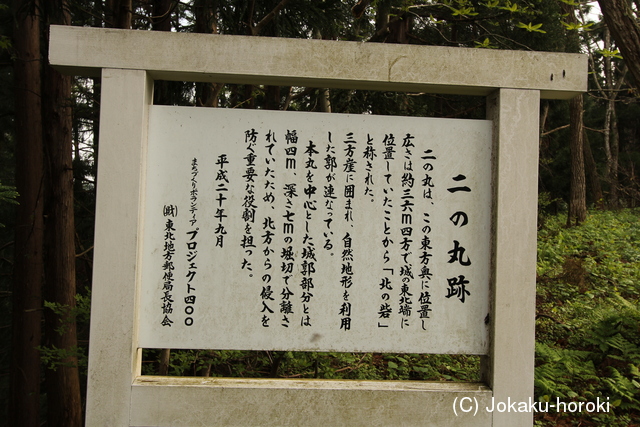 二の丸跡
二の丸は、この東方奥に位置し
広さは約三六m四方で城の東北端に
位置していたことから「北の砦」
と称された。
三方崖に囲まれ、自然地形を利用
した郭が連なっている。
本丸を中心とした城郭部分とは
幅四m、深さ七mの堀切で分離さ
れていたため、北方からの侵入を
防ぐ重要な役割を担った。
平成二十年九月
まちづくりボランティア プロジェクト四〇〇
㈶東北地方郵便局長協会
(C) Jokaku-horoki